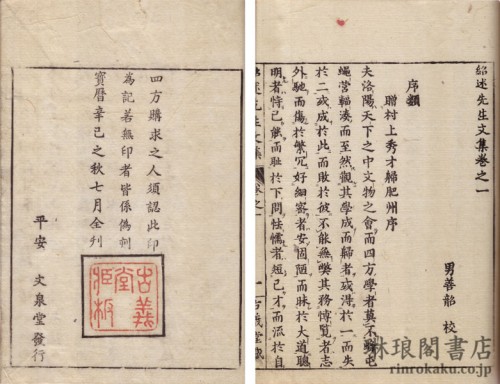 紹述先生文集卷之一
男善韶 校
序類
贈村上秀才歸肥州序
夫洛陽天下之中文物之會而四方學者莫不
繩營輻湊而至然觀其學成而歸者或得於一而失
於二或成於此而敗於彼不能無弊其務博覧者志
外馳而傷於繁冗好細密者安固陋而昧於大道聰
明者恃己能而耻於下問怯懦者短己才而泒於自
四方購求之人須認此印
為記若無印者皆係偽刻
寶曆辛巳之秋七月全刋
平安 文泉堂發行
古義
堂
板
琳琅閣書店
rinrokaku.co.jp